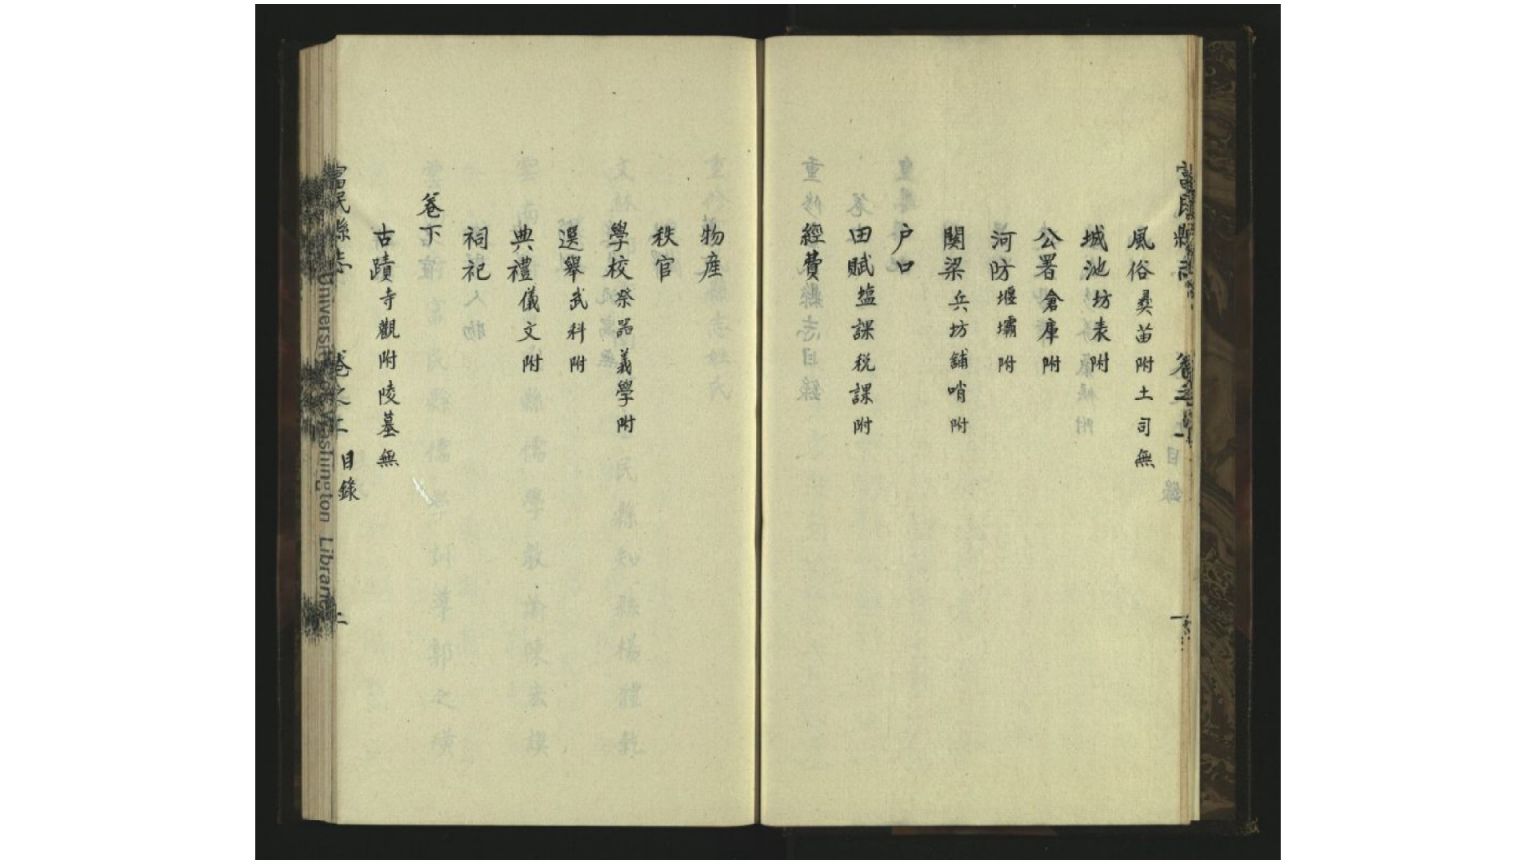 風俗彛苗附土司無
城池坊表附
公署倉庫附
河防堰壩附
関梁兵坊舖哨附
户口
田賦塩課税課附
經費
物産
秩官
學校祭器義學附
選舉武科附
典禮儀文附
祠祀
卷下
古蹟寺觀附陵墓無
富民縣志 卷之 目錄 二
University of Washington Libraries